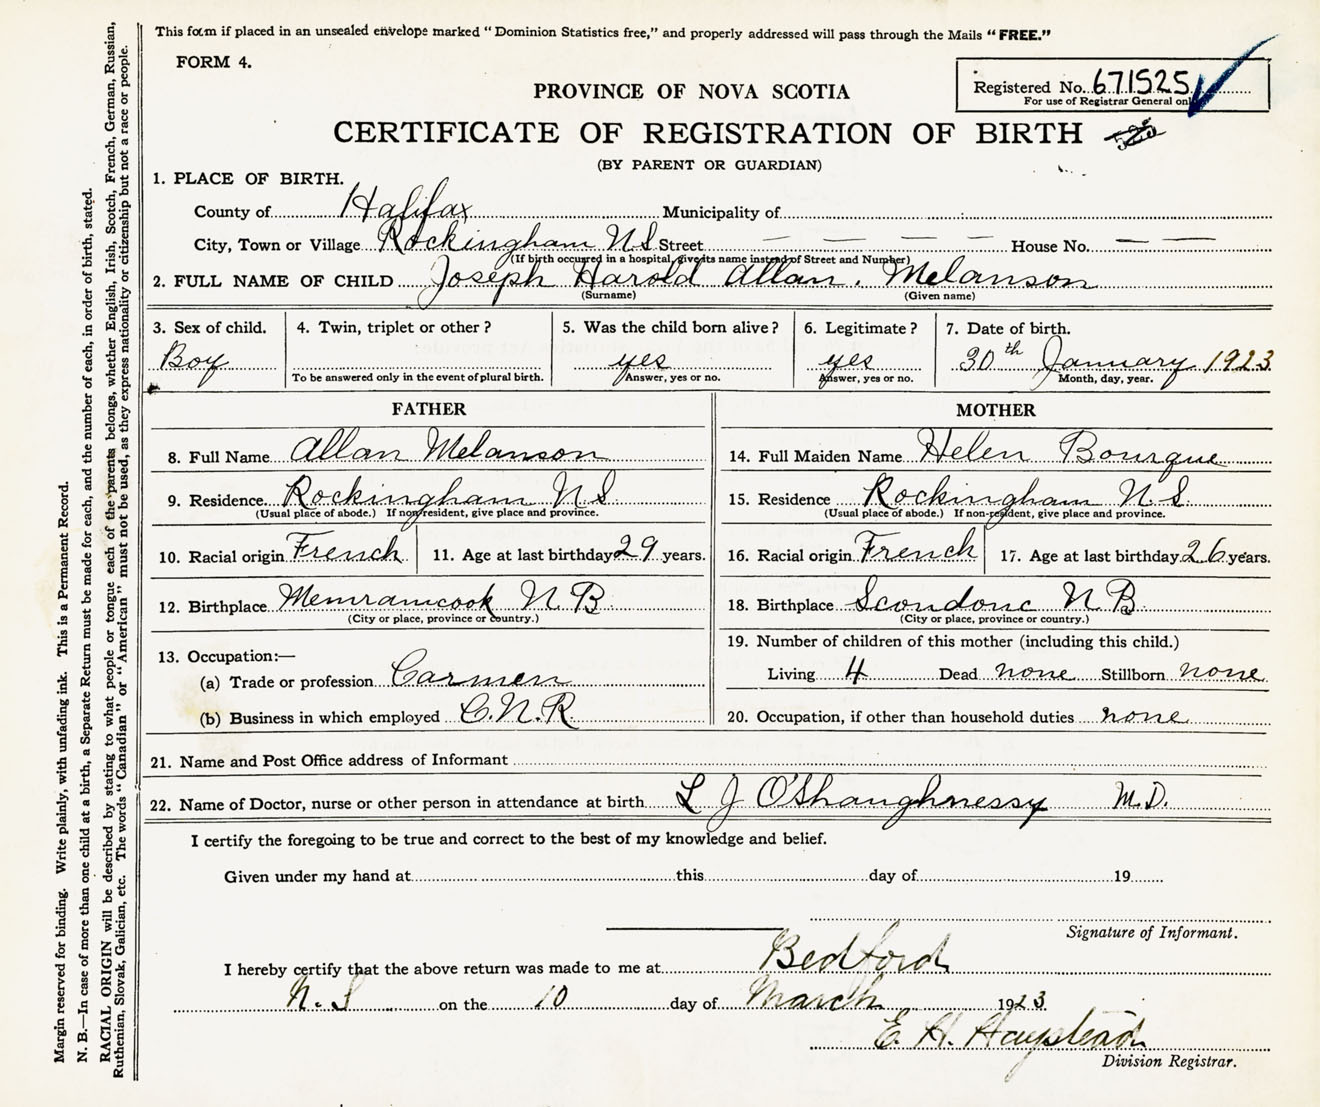 This form if placed in an unsealed envelope marked "Dominion Statistics free," and properly addressed will pass through the Mails "FREE."
FORM 4.
Registered No. 671525
For use of Registrar General only
PROVINCE OF NOVA SCOTIA
CERTIFICATE OF REGISTRATION OF BIRTH 525
(BY PARENT OR GUARDIAN)
1. PLACE OF BIRTH.
County of Halifax Municipality of
City, Town or Village Rockingham N S Street — — — — House No. — —
(If birth occurred in a hospital, give its name instead of Street and Number)
2. FULL NAME OF CHILD Joseph Harold Allan. Melanson
(Surname) (Given name)
3. Sex of child. 4. Twin, triplet or other? 5. Was the child born alive? 6. Legitimate? 7. Date of birth.
Boy yes yes 30th January 1923
To be answered only in the event of plural birth. Answer, yes or no. Answer, yes or no. Month, day, year.
FATHER MOTHER
8. Full Name Allan Melanson 14. Full Maiden Name Helen Bourque
9. Residence Rockingham N S. 15. Residence Rockingham N.S.
(Usual place of abode.) If non-resident, give place and province. (Usual place of abode.) If non-resident, give place and province.
10. Racial origin French 11. Age at last birthday 29 years. 16. Racial origin French 17. Age at last birthday 26 years.
12. Birthplace Memramcook N.B. 18. Birthplace Scoudouc N.B.
(City or place, province or country.) (City or place, province or country.)
19. Number of children of this mother (including this child.)
13. Occupation:—
(a) Trade or profession Carmen Living 4 Dead none Stillborn none
(b) Business in which employed C.N.R 20. Occupation, if other than household duties none
21. Name and Post Office address of Informant
22. Name of Doctor, nurse or other person in attendance at birth L J O'Shaughnessy M.D.
I certify the foregoing to be true and correct to the best of my knowledge and belief.
Given under my hand at this day of 19
Signature of Informant.
I hereby certify that the above return was made to me at Bedford
N.S on the 10 day of March 1923
E. H. Haystead
Division Registrar.
Margin reserved for binding. Write plainly, with unfading ink. This is a Permanent Record.
N. B.—In case of more than one child at a birth, a Separate Return must be made for each, and the number of each, in order of birth, stated.
RACIAL ORIGIN will be described by stating to what people or tongue each of the parents belongs, whether English, Irish, Scotch, French, German, Russian,
Ruthenian, Slovak, Galician, etc. The words "Canadian" or "American" must not be used, as they express nationality or citizenship but not a race or people.